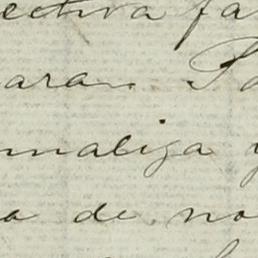 ectiva fa
aran. Pa
naliza y
a de no